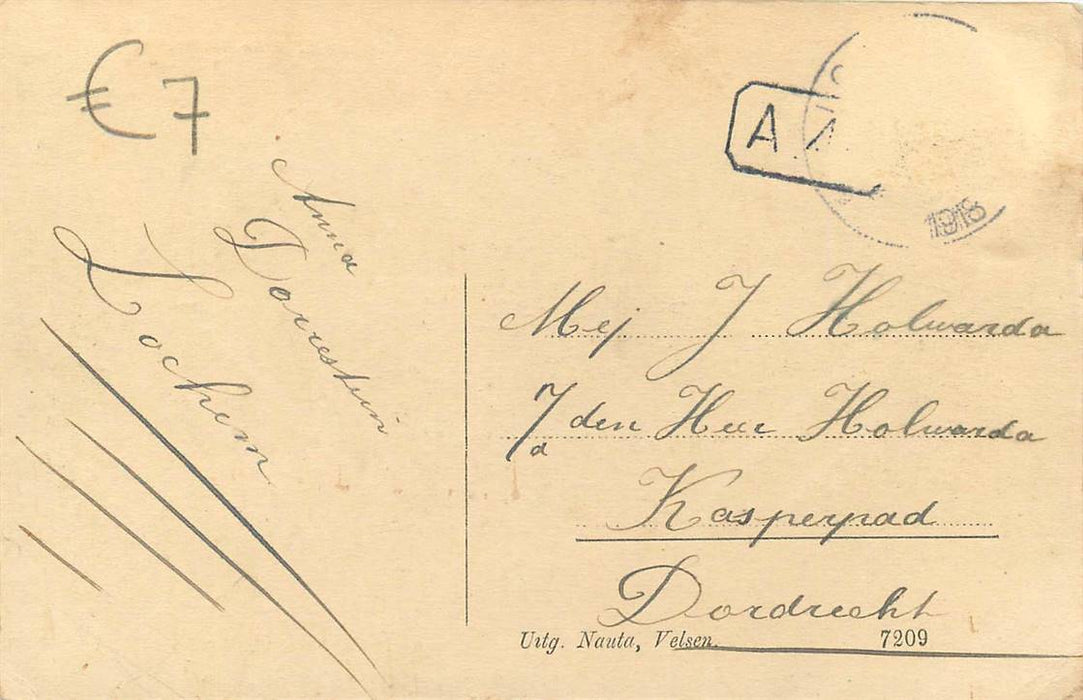 € 7
A
1918
Anna
Dorrestein
Lochem
Mej J Holwarda
den Heer Holwarda
Kasperpad
Dordrecht
Uitg. Nauta, Velsen. 7209